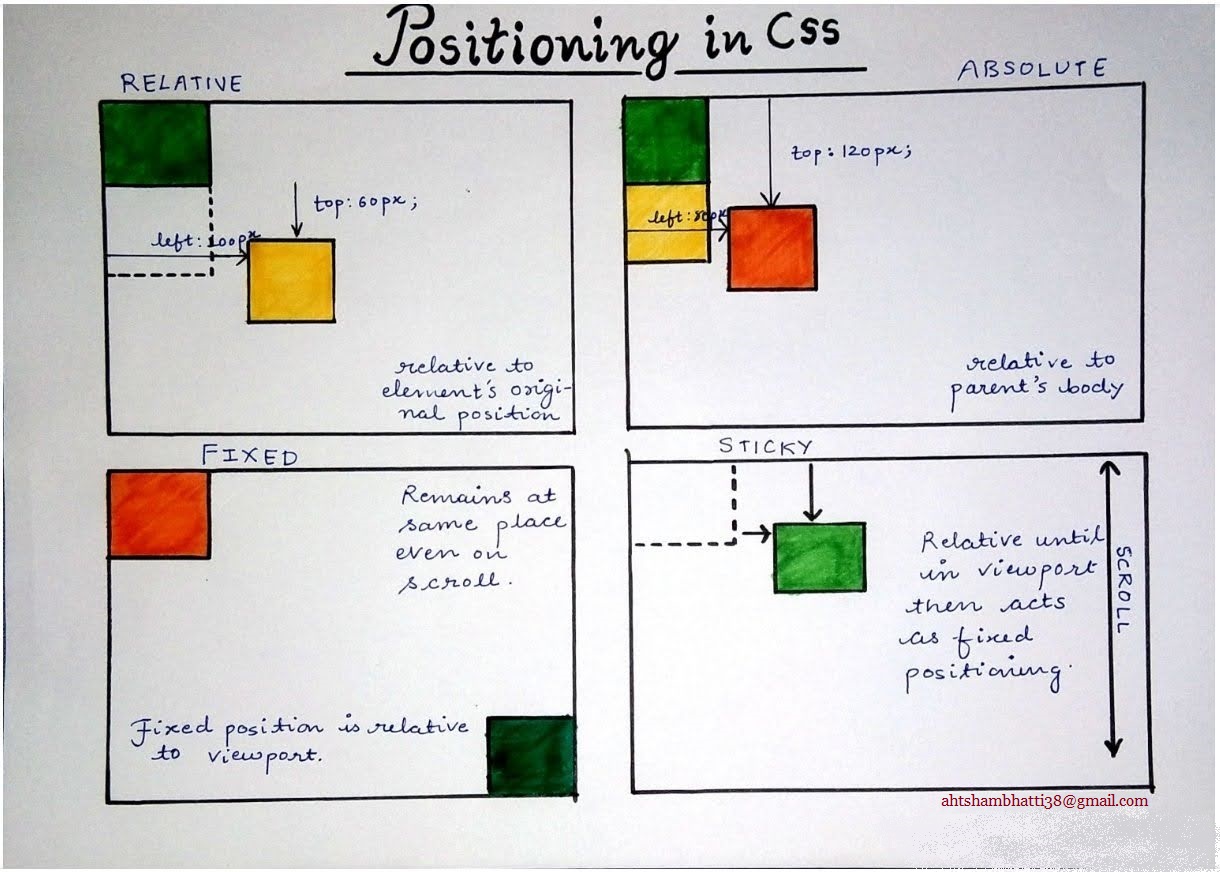 Positioning in Css
RELATIVE
top: 60px;
left: 100px
relative to
element's origi-
nal position
ABSOLUTE
top: 120px;
left: 80px
relative to
parent's body
FIXED
Remains at
same place
even on
scroll.
Fixed position is relative
to viewport.
STICKY
Relative until
in viewport
then acts
as fixed
positioning.
SCROLL
ahtshambhatti38@gmail.com